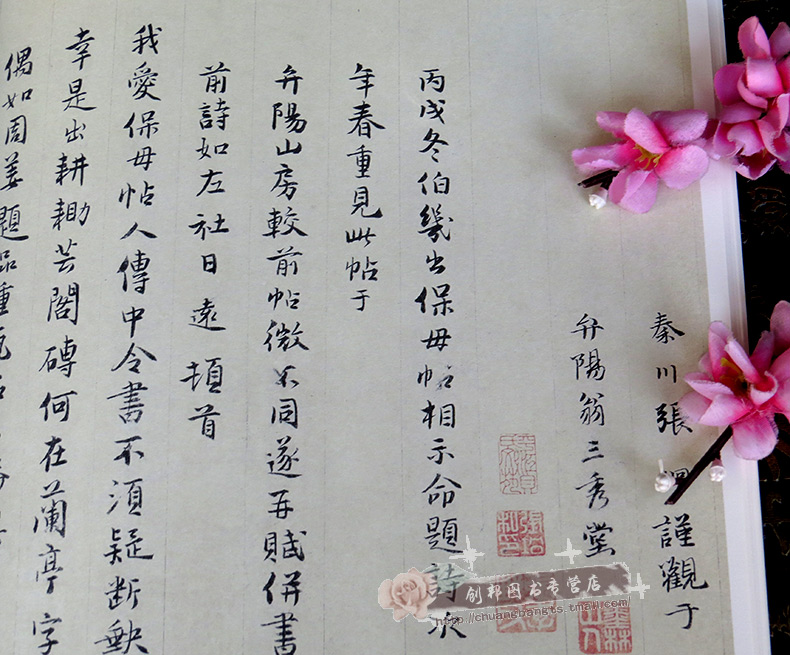 秦川張 謹觀于
弁陽翁三秀堂
丙戌冬伯幾出保母帖相示命題詩次
年春重見此帖于
弁陽山房較前帖微不同遂再賦併書
前詩如左社日遠頓首
我愛保母帖人傳中令書不須疑斷缺
幸是出耕耡芸閣磚何在蘭亭字
偶如周姜題品重
创邦图书专营店
http://chuangbangts.tmall.com/